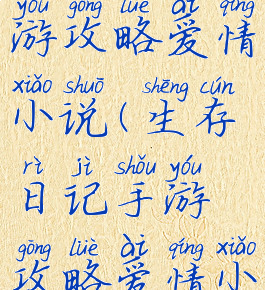 yóu gōng lüè ài qíng
游攻略爱情
xiǎo shuō ( shēng cún
小说(生存
rì jì shǒu yóu
日记手游
gōng lüè ài qíng xiǎo
攻略爱情小